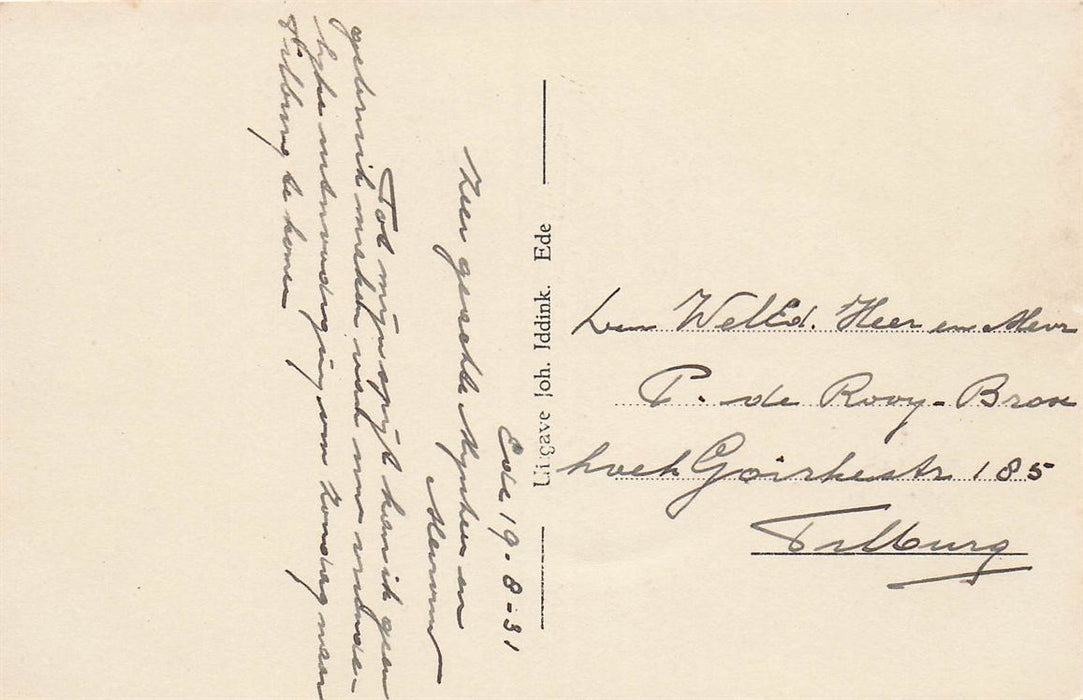 Ede 19-8-31
Zeer geachte Mijnheer en
Mevrouw
Tot mijn spijt kan ik geen
gebruik maken van uw vriende-
lijke uitnoodiging om Zondag naar
Tilburg te komen
Uitgave Joh. Iddink. Ede
Den WelEd. Heer en Mevr
P. de Rooy-Brox
hoek Goirkestr 185
Tilburg